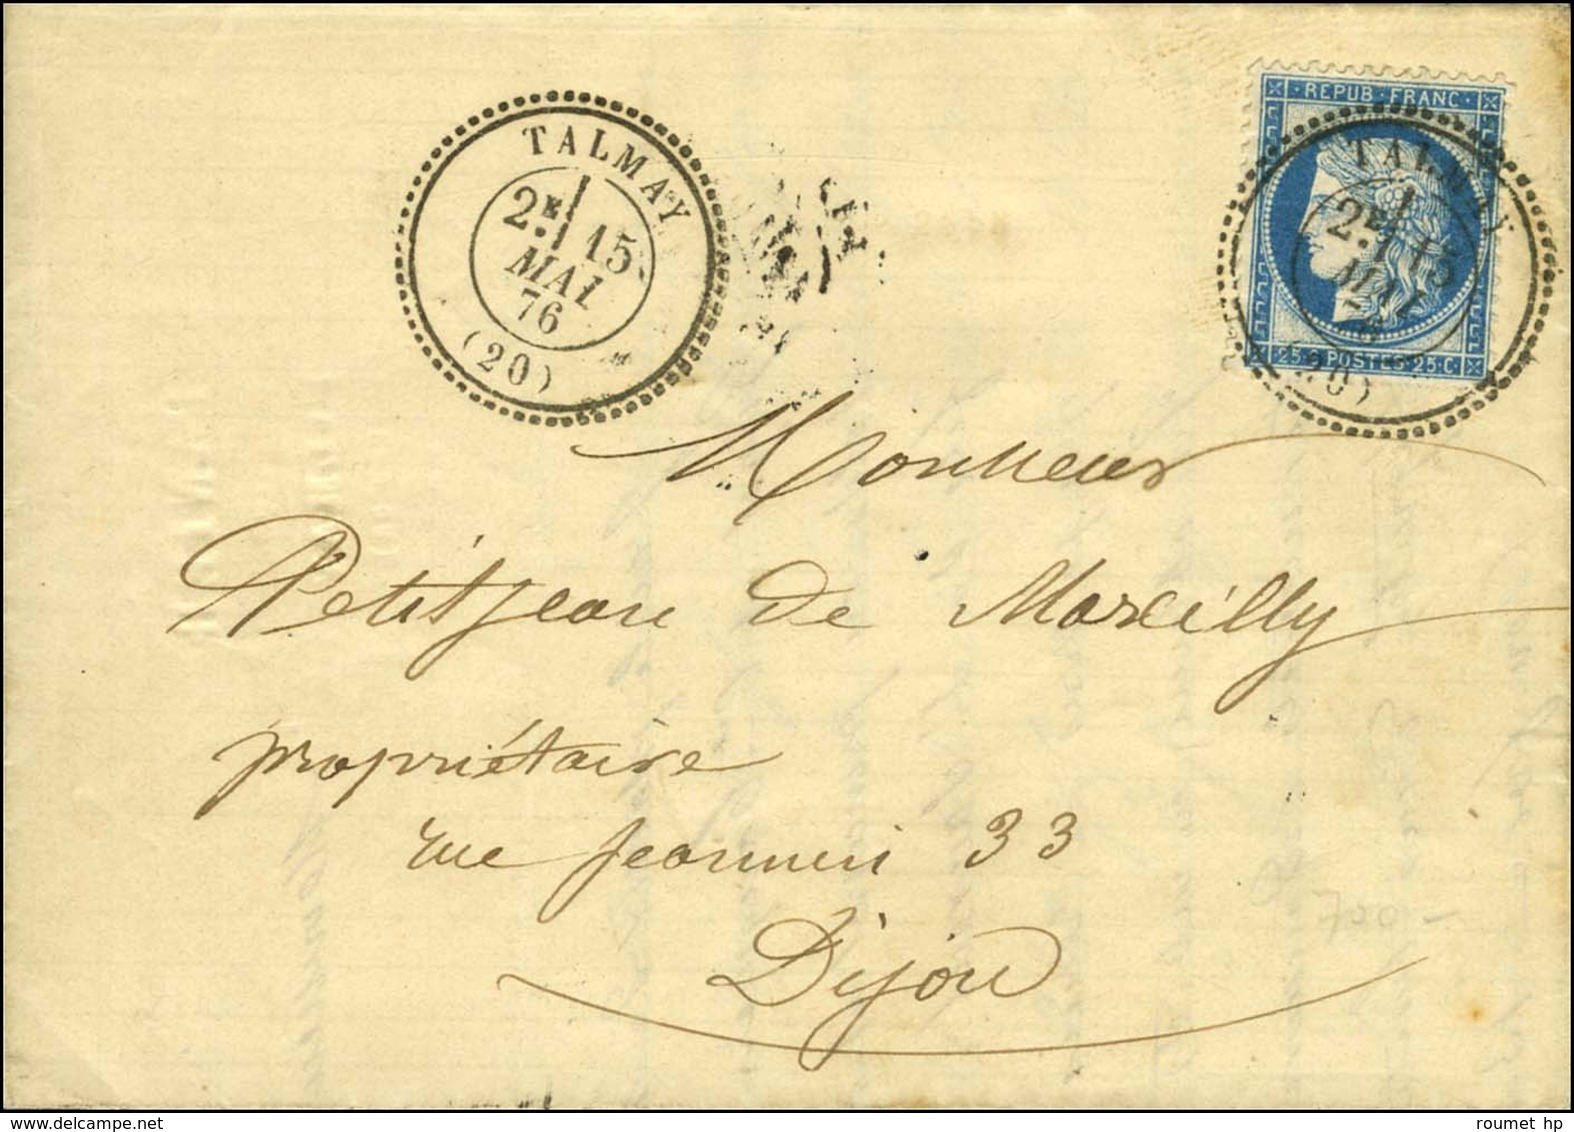 TALMAY
2E
15
MAI
76
(20)
REPUB·FRANC·
TALMAY
2E
15
MAI
76
(20)
25·C·POSTES·25·C·
Monsieur
Petitjean de Marcilly
propriétaire
rue Jeannin 33
Dijon
700 -
delcampe.net
roumet hp